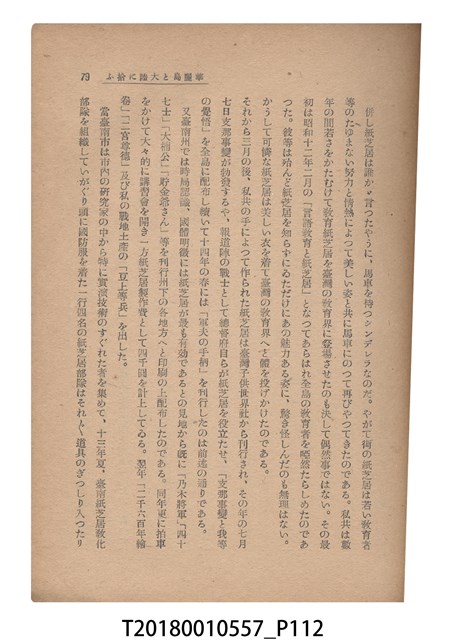 華麗島と大陸に繪ふ
79
併し紙芝居は誰か言つたやうに、馬車を待つシンデレラなのだ。やがて街の紙芝居は若い敎育者
等のたゆまない努力と情熱によつて美しい姿と共に馬車にのつて再びやつてきたのである。私共は數
年の間若さをかたむけて敎育紙芝居を臺灣の敎育界に登場させたのも決して偶然事ではない。その最
初は昭和十二年二月の「言語敎育と紙芝居」となつてあらはれ全島の敎育者を啞然たらしめたのであ
つた。彼等は殆んど紙芝居を知らずにゐただけにあの魅力ある姿に、驚き怪しんだのも無理はない。
かうして可憐な紙芝居は美しい衣を着て臺灣の敎育界へと體を投げかけたのである。
それから三月の後、私共の手によつて作られた紙芝居は臺灣子供世界社から刊行され、その年の七月
七日支那事變が勃發するや、報道陣の戰士として總督府自らが紙芝居を役立たせ、「支那事變と我等
の覺悟」を全島に配布し續いて十四年の春には「軍犬の手柄」を刊行したのは前述の通りである。
又臺南州では時局認識、國體明徵には紙芝居が最も有効であるとの見地から旣に「乃木將軍」「四十
七士」「大楠公」「貯金爺さん」等を刊行州下の各地方へと印刷の上配布したのである。同年更に拍車
をかけて大々的に講習會を開き一方紙芝居製作費として四千圓を計上してゐる。翌年「二千六百年繪
卷」「二宮尊德」及び私の戰地土產の「豆上等兵」を出した。
當臺南市は市內の硏究家の中から特に實演技術のすぐれた者を集めて、十三年夏、臺南紙芝居敎化
部隊を組織していがぐり頭に國防服を着た一行四名の紙芝居部隊はそれ〴〵道具のぎつしり入つたり
T20180010557_P112